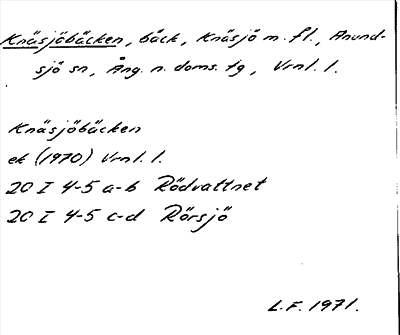 Knäsjöbäcken, bäck, Knäsjö m. fl., Anund-
sjö sn, Ång. n. doms. tg, Vrnl. l.
Knäsjöbäcken
ek (1970) Vrnl. l.
20 I 4-5 a-b Rödvattnet
20 I 4-5 c-d Rörsjö
L.F. 1971.